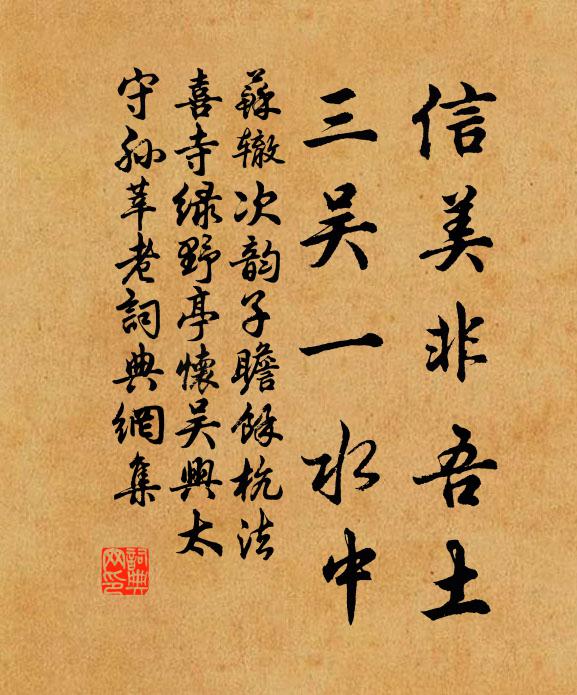 信美非吾土
三吴一水中
蘇辙次韵子瞻餘杭法
喜寺绿野亭懷吴興太
守孙莘老詞典網集
詞典
网印